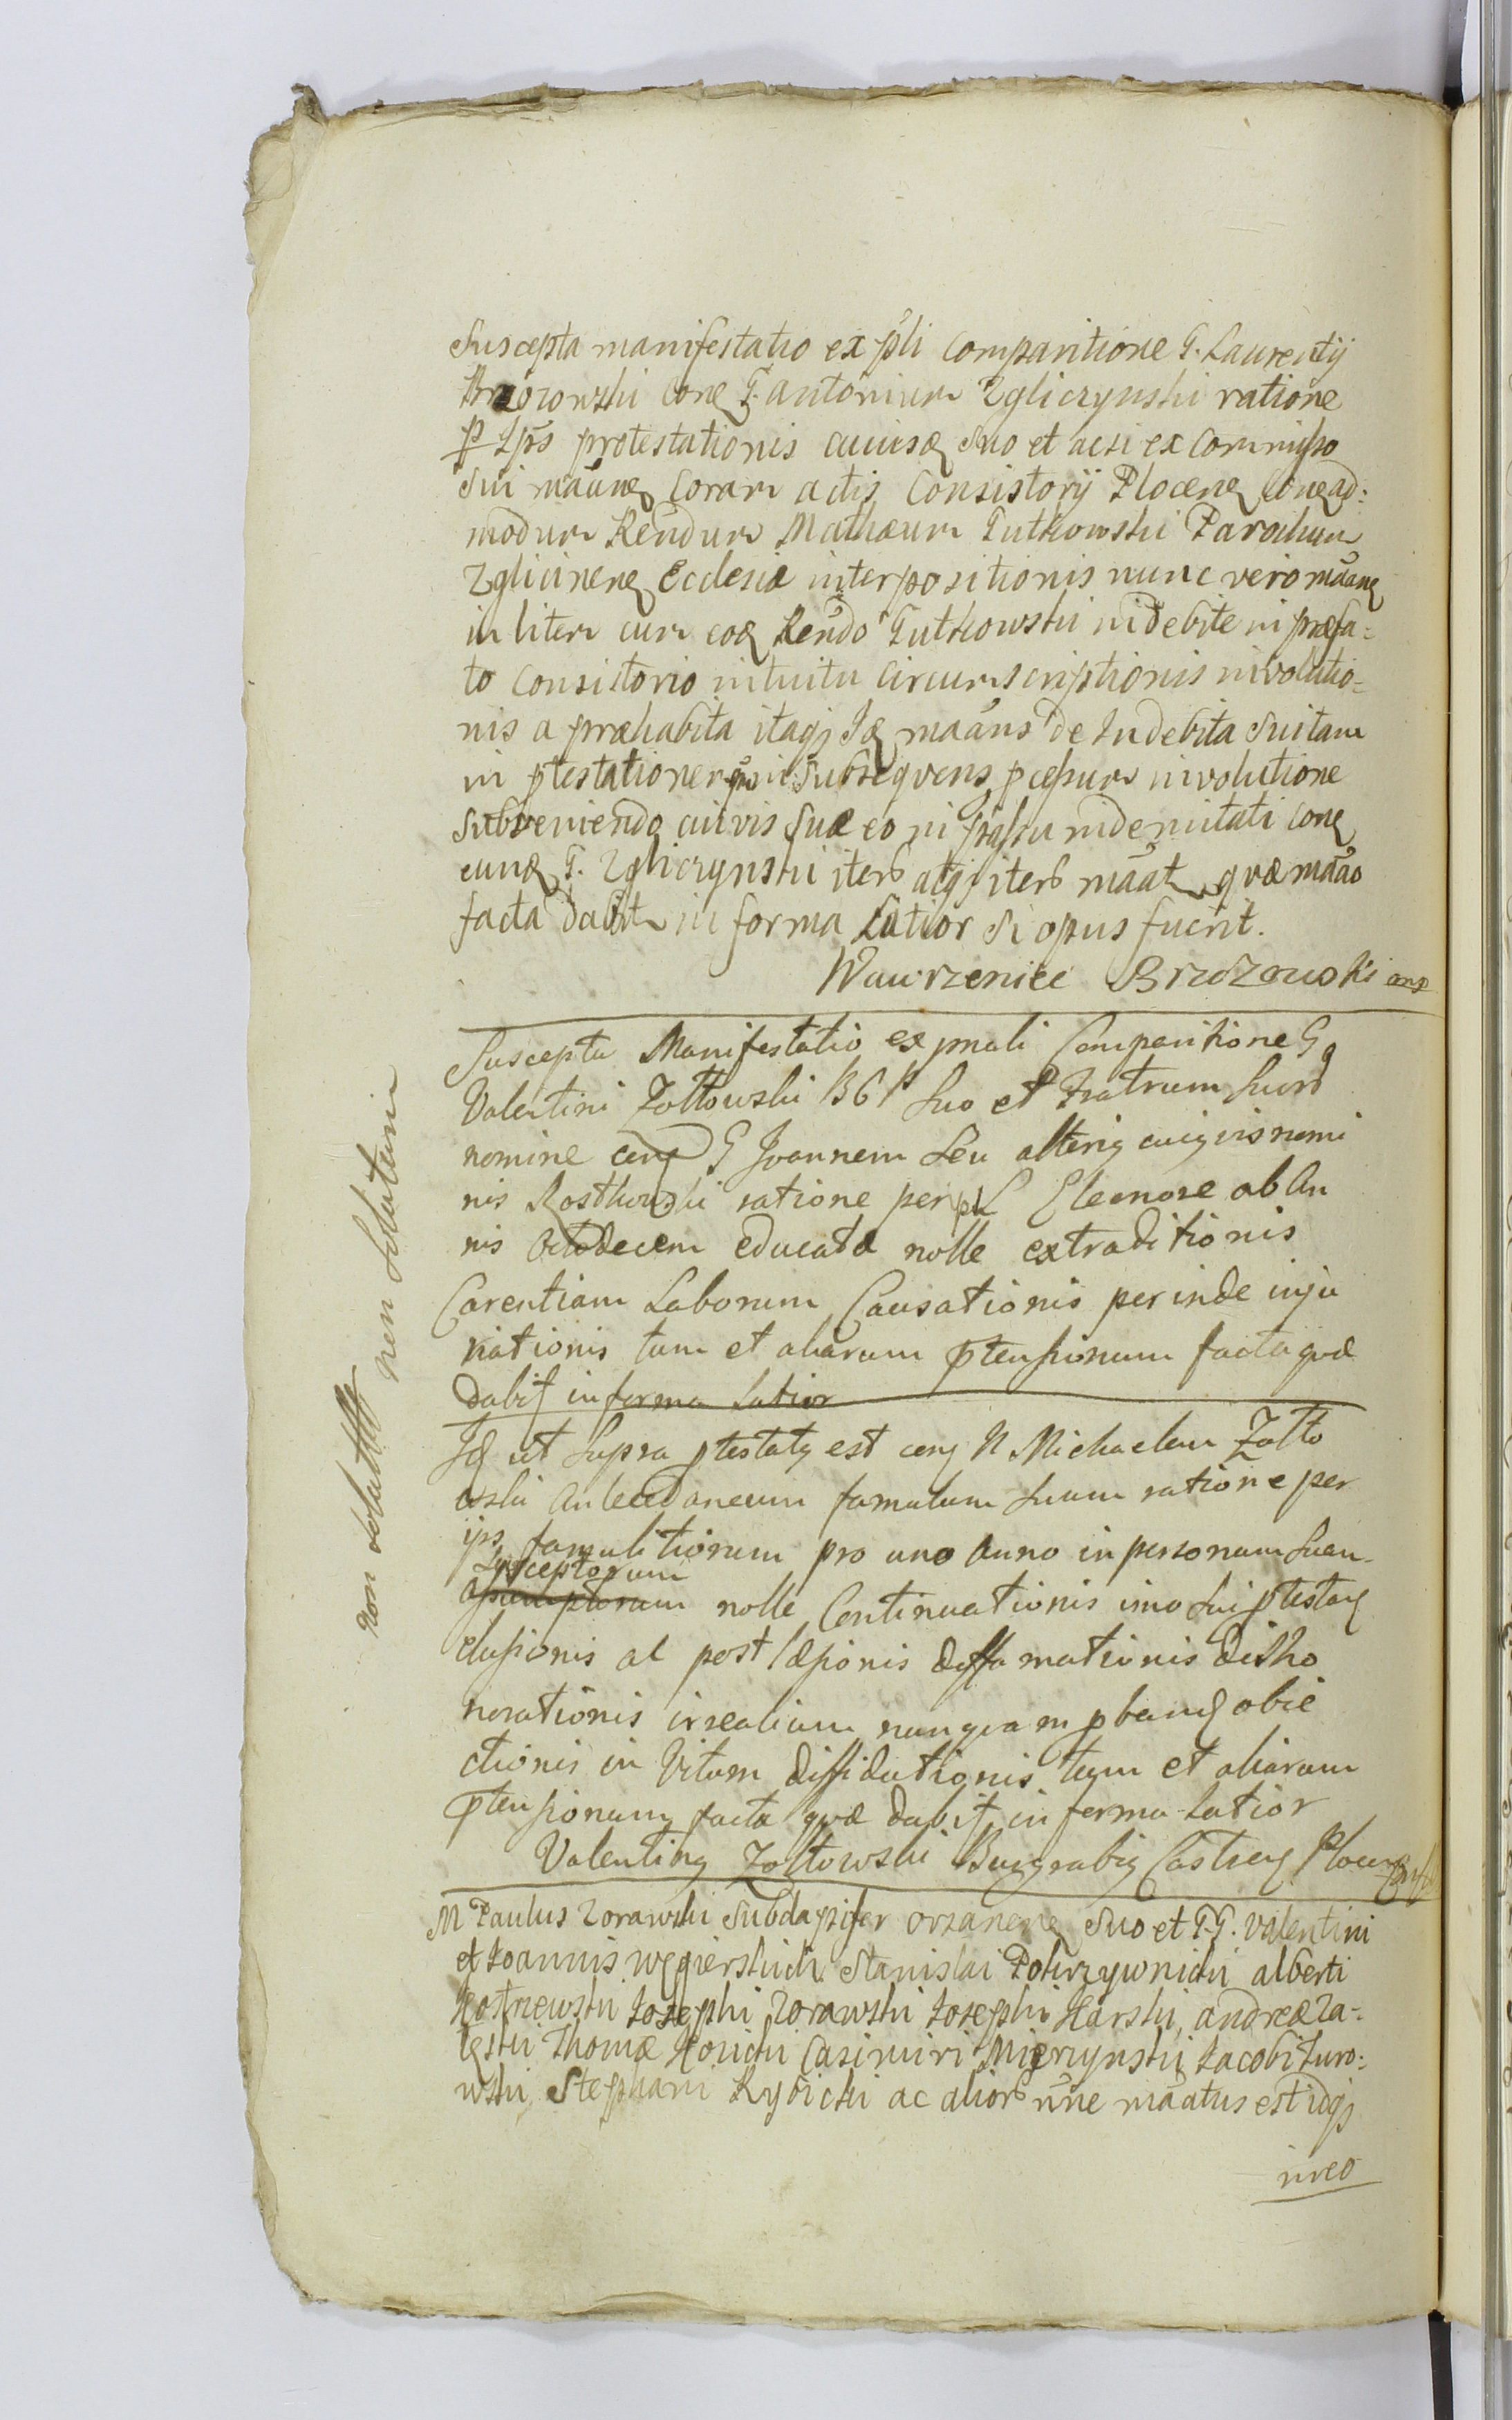 Suscepta manifestatio ex pñli comparitione G. Laurentij
Brzozowski conę G. antonium Zgliczynski ratione
p Ips protestationis cuiusꝗ suo et acsi ex commisso
sui mãnnę coram actis Consistorij Plocenę conę ad:
modum Rendum Mathæum Gutkowski Parochum
Zglicinenę Ecclesiæ interpositionis nunc vero mãanę
in litem cum eoꝗ Rendo Gutkowski indebite in præfa=
to Consistorio intuitu circumscriptionis involutio=
nis a præhabita itaqꝫ Iꝗ maãns de Indebita sui tam
in ptestationem in subsequens pcessum involutione
subveniendo cuivis suæ eo in passu indemnitati conę
eunꝗ G. Zgliczynski iterꝰ atqꝫ iterꝰ mãat quæ mãao
facta dabit in forma Latior si opus fuerit.
Wawrzeniec Brzozowski
Suscepta Manifestatio ex pnali Comparitione G
Valentini Zołtowski B G P suo et Fratrum suorꝰ
nomine conę G Joannem seu alterię cuię vis nomi
nis Rostkowski ratione per Eleonoræ ab An
nis Octodecem educatæ nolle extraditionis
Carentiam Laborum Causationis perinde inju
riationis tum et aliarum ptensionum facta quæ
dabiꝭ in forma Latior
Iꝗ ut supra ptestatę est conę N Michaelem Zołto
wski Antecedaneum famulum suum ratione per
ips famulitiorum pro uno Anno in personam suam
susceptorum
assumptorum nolle Continuationis imo sui ptestanę
elusionis al post læsionis deffamationis disho
norationis irrealium nunquam pbanꝗ obie
ctionis in Vitam diffidationis tum et aliarum
ptensionum facta quæ dabiꝭ in forma Latior
Valentinę Zołtowski Burgrabię Castreę Plocenę
M Paulus Zorawski Subdapifer orsanenę suo et GG. Valentini
et Ioannis Węgierskich Stanislai Pokrzywnicki alberti
Kostrzewski Iosephi Zorawski Iosephi Karski, andreæ Za=
lęski Thomæ Konicki Casimiri Mierzynski Iacobi Zuro:
wski Stephani Rybicki ac aliorꝰ nñe mãatus est idqꝫ
in eo
non solutt
non solutum